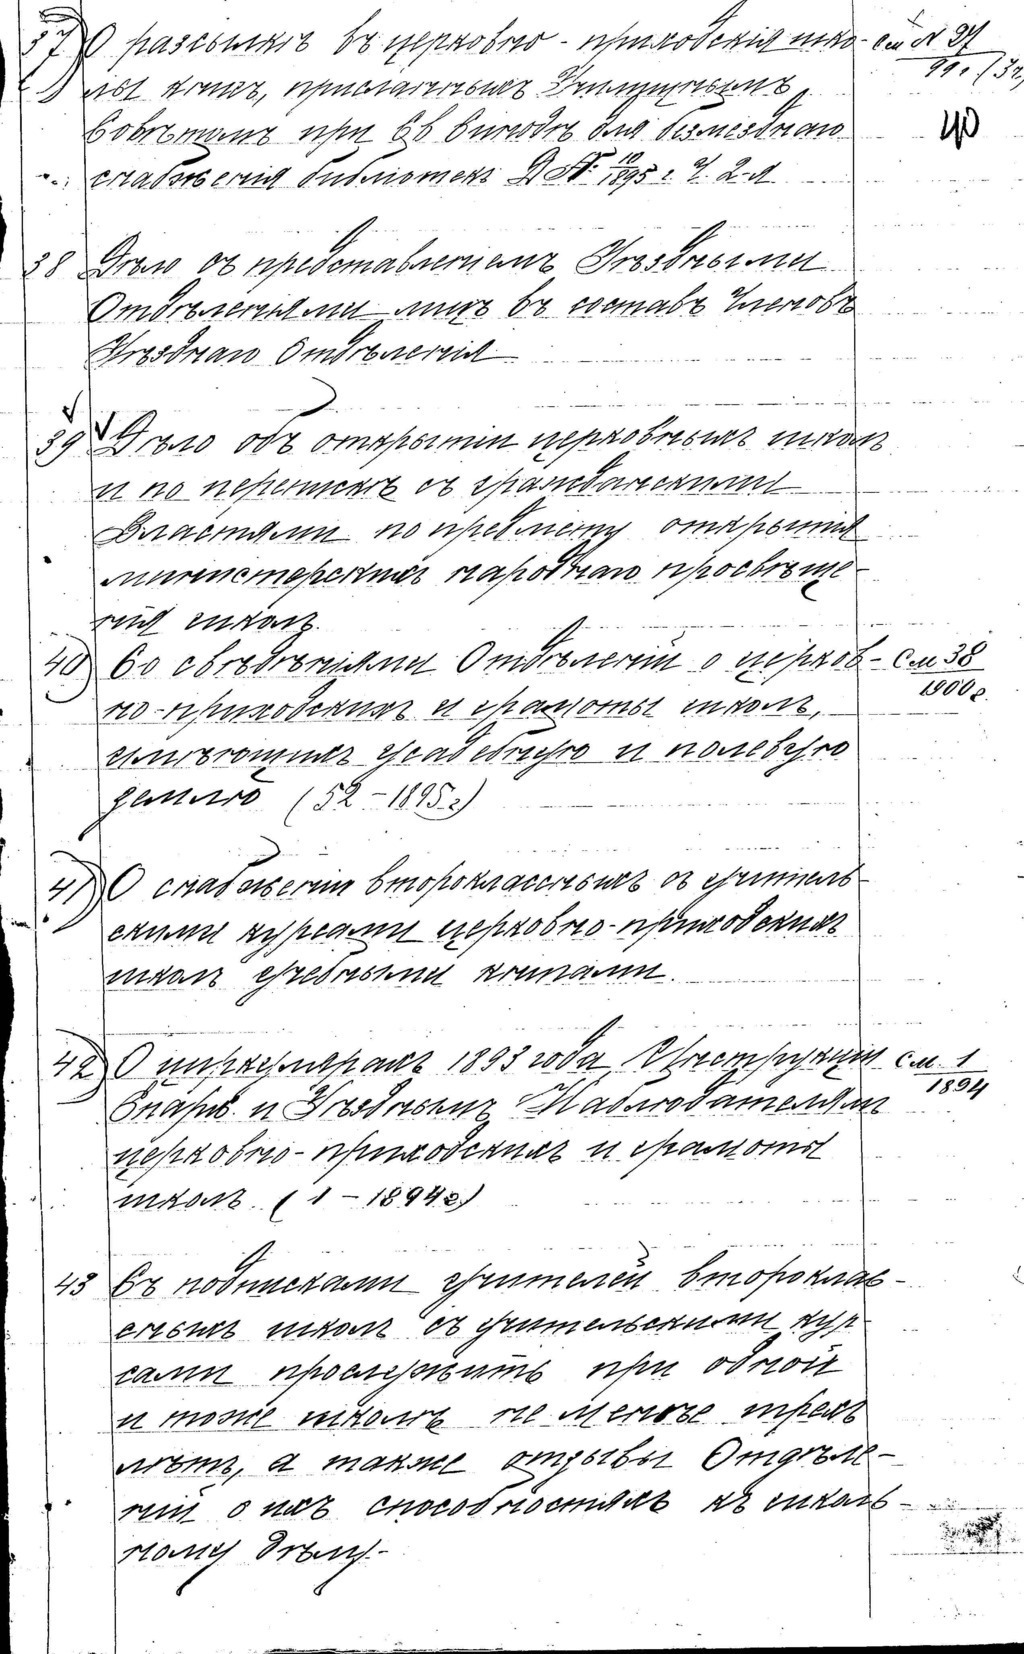 37) О разсылкѣ въ церковно-приходскія шко- см № 27
лы книгъ, присланныхъ Училищнымъ 99 г. (31)
Совѣтомъ при Св Синодѣ для безмезднаго 40
снабженія библіотекъ Д № 10/1895 г. Ч. 2-я
38 Дѣло съ представленіемъ Уѣздными
Отдѣленіями лицъ въ составъ Членовъ
Уѣзднаго Отдѣленія
39 Дѣло объ открытіи церковныхъ школъ
и по перепискѣ съ гражданскими
Властями по предмету открытія
министерскихъ народнаго просвѣще-
нія школъ.
40) Со свѣдѣніями Отдѣленій о церков- См 38
но-приходскихъ и грамоты школъ, 1900 г.
имѣющихъ усадебную и полевую
землю (52-1895 г)
41) О снабженіи второклассныхъ съ учитель-
скими курсами церковно-приходскихъ
школъ учебными книгами.
42) О циркулярахъ 1893 года, Инструкціи см. 1
Епарх. и Уѣзднымъ Наблюдателямъ 1894
церковно-приходскихъ и грамоты
школъ. (1-1894 г)
43 Съ подписками учителей второклас-
сныхъ школъ съ учительскими кур
сами прослужить при одной
и тоже школѣ не менѣе трехъ
лѣтъ, а также отзывы Отдѣле-
ній о ихъ способностяхъ къ школь-
ному дѣлу.-